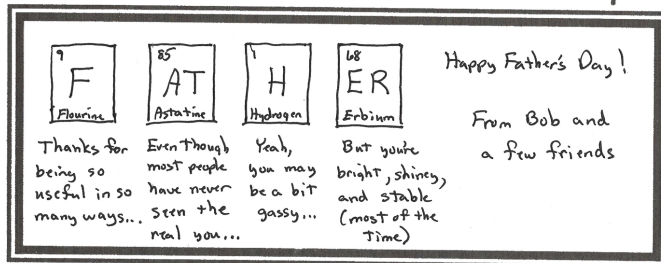 9
F
Flourine
Thanks for
being so
useful in so
many ways...
85
AT
Astatine
Even though
most people
have never
seen the
real you...
1
H
Hydrogen
Yeah,
you may
be a bit
gassy...
68
ER
Erbium
But you're
bright, shiney,
and stable
(most of the
time)
Happy Father's Day!
From Bob and
a few friends